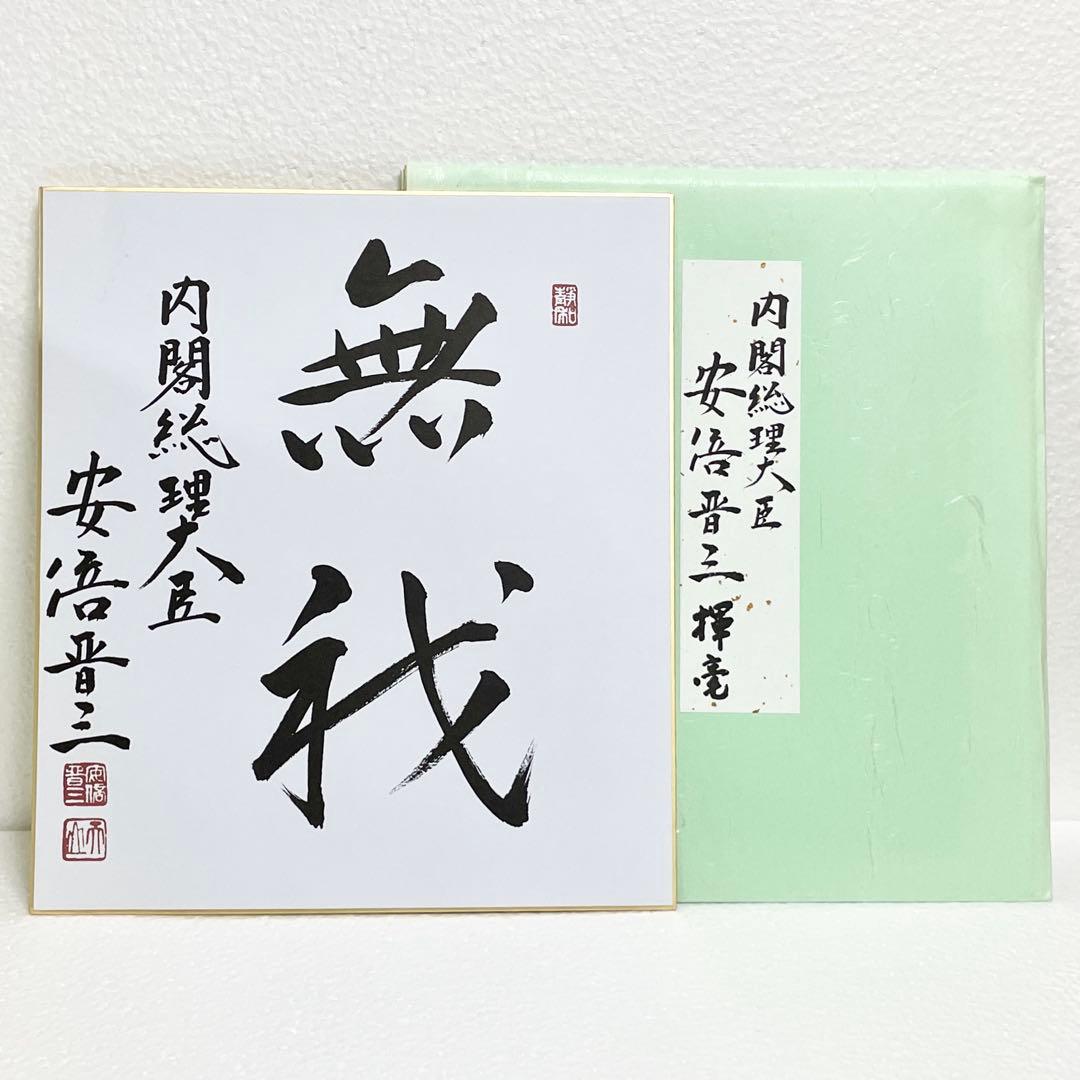 無我
内閣総理大臣
安倍晋三
安倍晋三
内閣総理大臣
安倍晋三揮毫